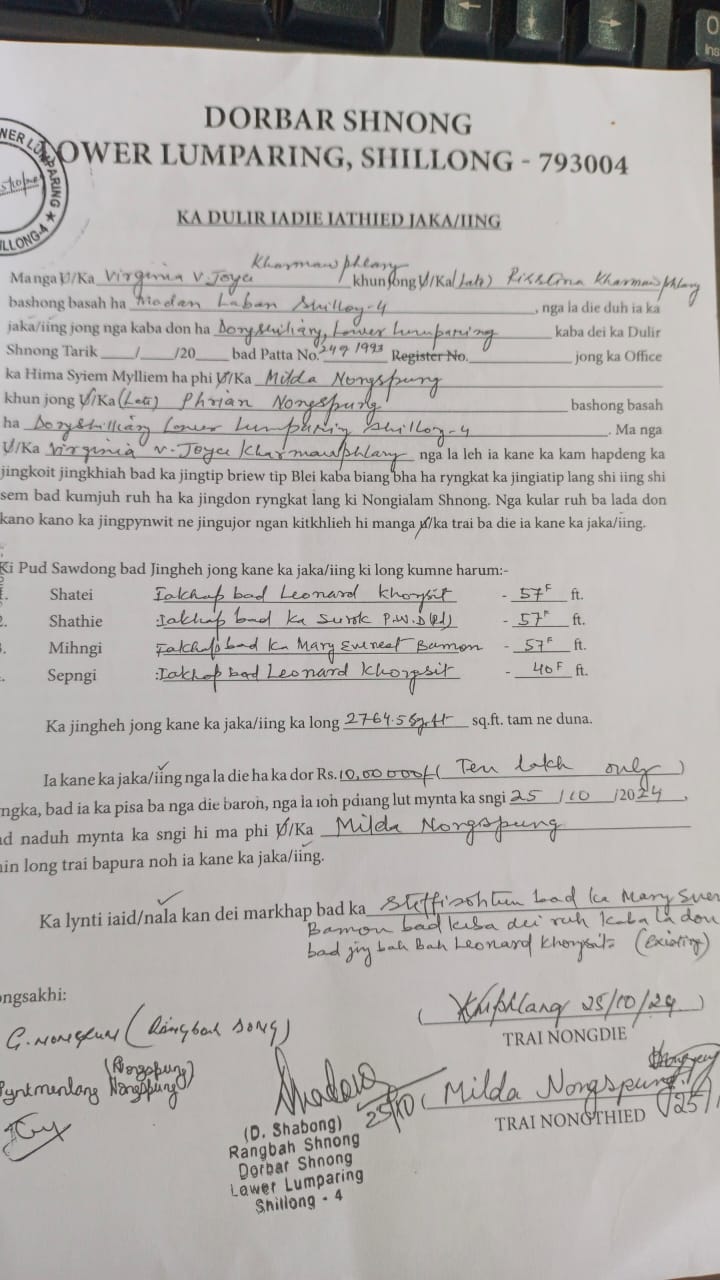 DORBAR SHNONG
LOWER LUMPARING, SHILLONG - 793004
KA DULIR IADIE IATHIED JAKA/IING
Kharmawphlang
Manga U/Ka Virginia V. Joyce khun jong U/Ka (Late) Risstina Kharmawphlang
bashong basah ha Madan Laban Shillong-4, nga la die duh ia ka
jaka/iing jong nga kaba don ha Dongshilliang, Lower Lumparing kaba dei ka Dulir
Shnong Tarik ___/___/20___ bad Patta No. 249/1993 Register No.___ jong ka Office
ka Hima Syiem Mylliem ha phi U/Ka Milda Nongspung
khun jong U/Ka (Late) Phrian Nongspung bashong basah
ha Dongshilliang Lower Lumparing Shillong-4. Ma nga
U/Ka Virginia V. Joyce Kharmawphlang nga la leh ia kane ka kam hapdeng ka
jingkoit jingkhiah bad ka jingtip briew tip Blei kaba biang bha ha ryngkat ka jingiatip lang shi iing shi
sem bad kumjuh ruh ha ka jingdon ryngkat lang ki Nongialam Shnong. Nga kular ruh ba lada don
kano kano ka jingpynwit ne jingujor ngan kitkhlieh hi manga u/ka trai ba die ia kane ka jaka/iing.
Ki Pud Sawdong bad Jingheh jong kane ka jaka/iing ki long kumne harum:-
Shatei Iakhap bad Leonard Khongsit - 57F ft.
2. Shathie :Iakhap bad ka Surok P.W.D (Rd) - 57F ft.
3. Mihngi Iakhap bad ka Mary Evereet Bamon - 57F ft.
Sepngi :Iakhap bad Leonard Khongsit - 40F ft.
Ka jingheh jong kane ka jaka/iing ka long 2764.5 Sq.ft sq.ft. tam ne duna.
Ia kane ka jaka/iing nga la die ha ka dor Rs. 10,00000/- (Ten lakh only)
ngka, bad ia ka pisa ba nga die baroh, nga la ioh pdiang lut mynta ka sngi 25/10/2024,
ad naduh mynta ka sngi hi ma phi U/Ka Milda Nongspung
hin long trai bapura noh ia kane ka jaka/iing.
Ka lynti iaid/nala kan dei markhap bad ka Steffisohtun bad ka Mary
Bamon bad kiba dei ruh kaba la don
bad jing bah Bah Leonard Khongsit (Existing)
ongsakhi:
G. Nongrum (Rangbah Dong) (Khiphlang 25/10/24)
TRAI NONGDIE
(Nongspung)
Pyntmenlang Nongspung
Shabong 25/10 (Milda Nongspung)
TRAI NONGTHIED
(D. Shabong)
Rangbah Shnong
Dorbar Shnong
Lower Lumparing
Shillong - 4